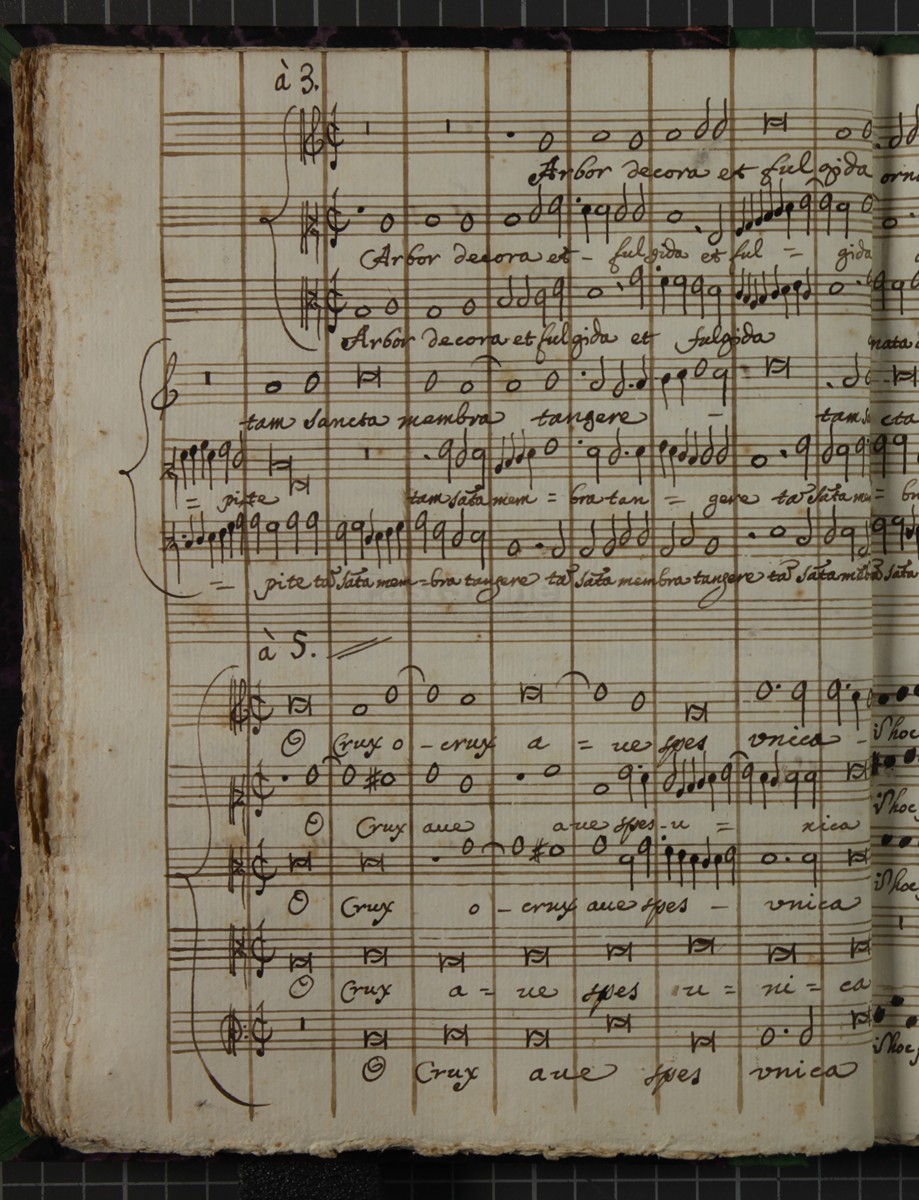 à 3.
Arbor decora et fulgida
Arbor decora et - fulgida et ful = gida
Arbor decora et fulgida et fulgida
tam sancta membra tangere - tam
= pite tam sãta mem = bra tan = gere tã sãta
= pite tã sãta mem = bra tangere tã sãta membra tangere tã sãta
à 5.
O Crux o - crux a = ue spes vnica -
O Crux aue aue spes - u = nica
O Crux o - crux aue spes - vnica
O Crux a = ue spes u = ni = ca
O Crux aue spes vnica